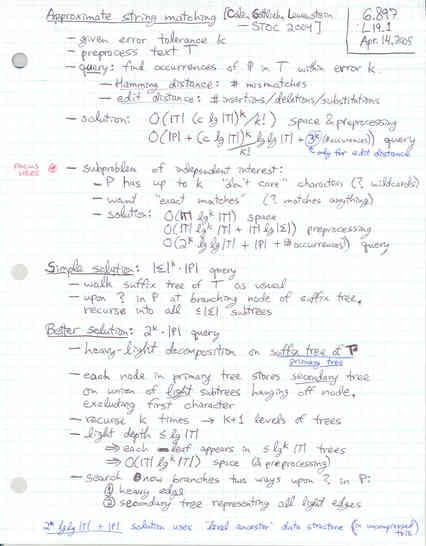 Approximate string matching [Cole, Gottlieb, Lewenstein
— STOC 2004]
6.897
L19.1
Apr. 14, 2005
— given error tolerance k
— preprocess text T
— query: find occurrences of P in T within error k
— Hamming distance: # mismatches
— edit distance: # insertions/deletions/substitutions
— solution: O(|T| (c lg|T|)^k/k!) space & preprocessing
O(|P| + (c lg|T|)^k/k! lg lg|T| + 3^k(#occurrences)) query
only for edit distance
FOCUS HERE
— subproblem of independent interest:
— P has up to k "don't care" characters (? wildcards)
— want "exact matches" (? matches anything)
— solution: O(|T| lg^k |T|) space
O(|T| lg^k |T| + |T| lg|Σ|) preprocessing
O(2^k lg lg|T| + |P| + # occurrences) query
Simple solution: |Σ|^k · |P| query
— walk suffix tree of T as usual
— upon ? in P at branching node of suffix tree,
recurse into all ≤|Σ| subtrees
Better solution: 2^k · |P| query
— heavy-light decomposition on suffix tree of T
primary tree
— each node in primary tree stores secondary tree
on union of light subtrees hanging off node,
excluding first character
— recurse k times → k+1 levels of trees
— light depth ≤ lg|T|
⇒ each leaf appears in ≤ lg^k |T| trees
⇒ O(|T| lg^k |T|) space (& preprocessing)
— search now branches two ways upon ? in P:
① heavy edge
② secondary tree representing all light edges
2^k lg lg|T| + |P| solution uses "level ancestor" data structure (in uncompressed trie)